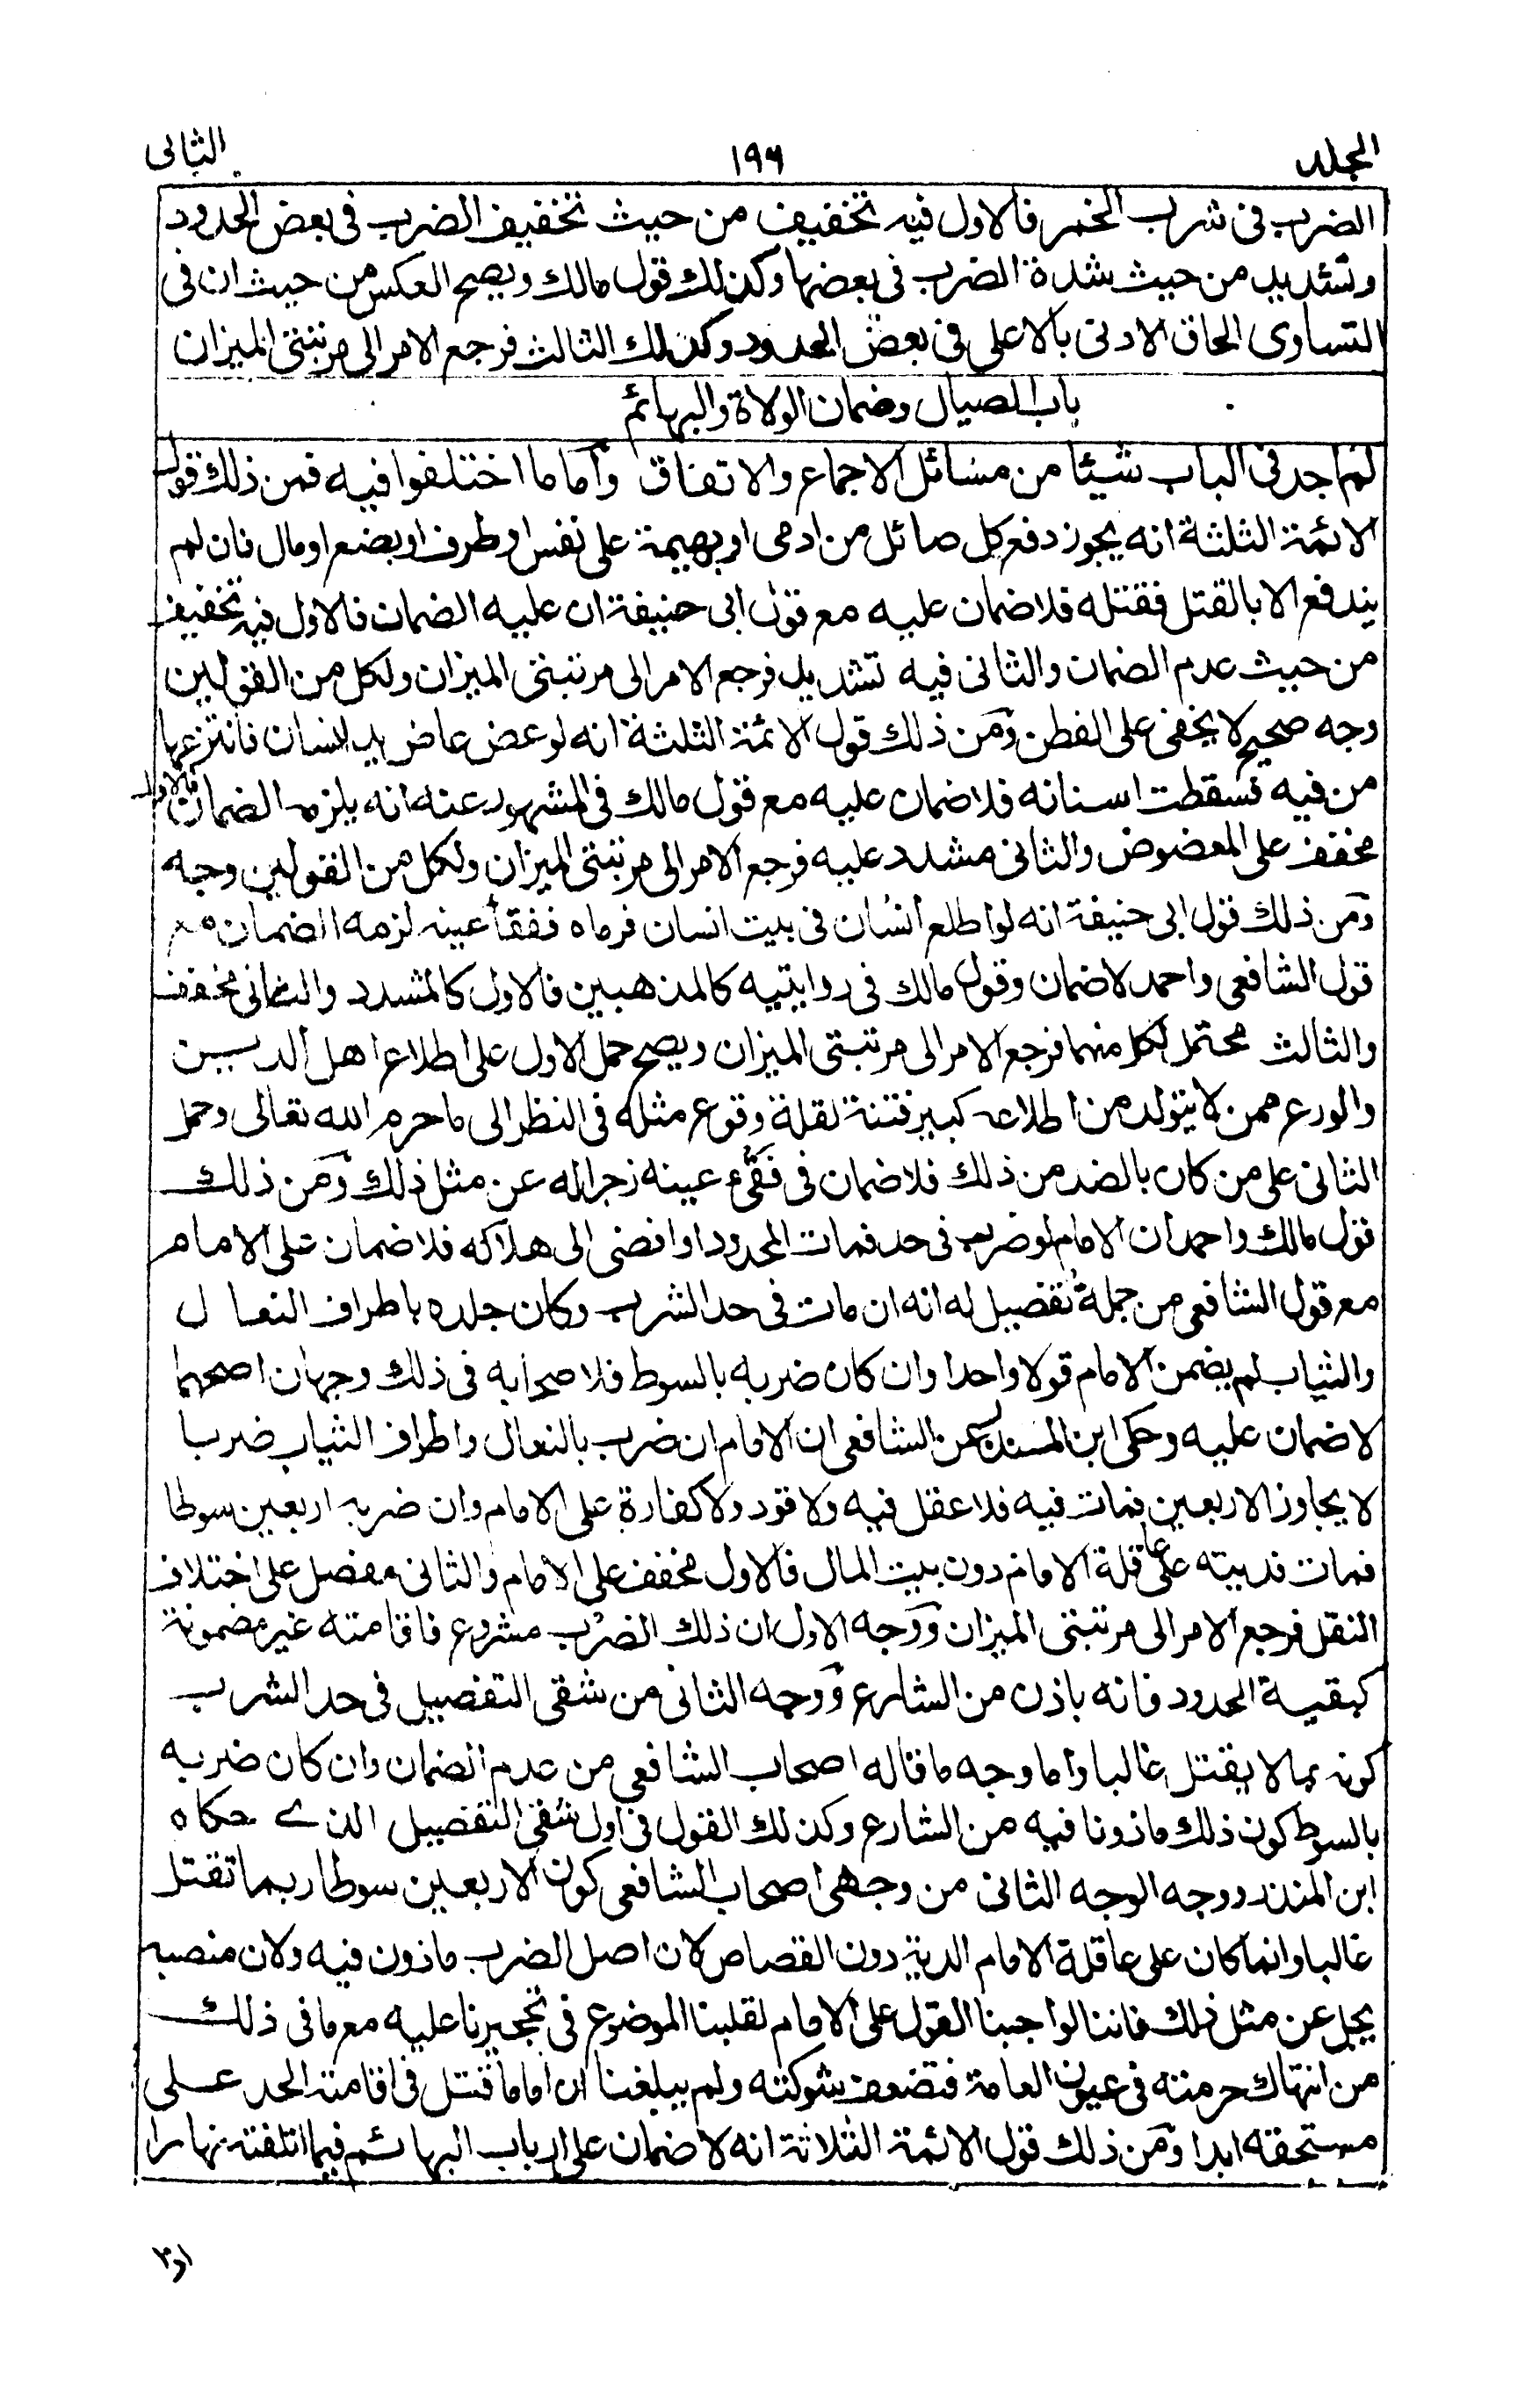 المجلد ١٩٦ الثانى
الضرب فى شرب الخمر فالاول فيه تخفيف من حيث تخفيف الضرب فى بعض الحدود
وتشديد من حيث شدة الضرب فى بعضها وكذلك قول مالك ويصح العكس من حيث ان فى
التساوى الحاق الادنى بالاعلى فى بعض الحدود وكذلك الثالث فرجع الامر الى مرتبتى الميزان
باب الصيال وضمان الولاة والبهائم
لم اجد فى الباب شيئا من مسائل الاجماع والاتفاق واما ما اختلفوا فيه فمن ذلك قول
الائمة الثلثة انه يجوز دفع كل صائل من ادمى او بهيمة على نفس او طرف او بضع او مال فان لم
يندفع الا بالقتل فقتله فلا ضمان عليه مع قول ابى حنيفة ان عليه الضمان فالاول فيه تخفيف
من حيث عدم الضمان والثانى فيه تشديد فرجع الامر الى مرتبتى الميزان ولكل من القولين
وجه صحيح لا يخفى على الفطن ومن ذلك قول الائمة الثلثة انه لو عض عاض يد انسان فانتزعها
من فيه فسقطت اسنانه فلا ضمان عليه مع قول مالك فى المشهور عنه انه يلزمه الضمان فالاول
مخفف على المعضوض والثانى مشدد عليه فرجع الامر الى مرتبتى الميزان ولكل من القولين وجه
ومن ذلك قول ابى حنيفة انه لو اطلع انسان فى بيت انسان فرماه ففقأ عينه لزمه الضمان مع
قول الشافعى واحمد لا ضمان وقول مالك فى روايتيه كالمذهبين فالاول كالمشدد والثانى مخفف
والثالث محتمل لكل منهما فرجع الامر الى مرتبتى الميزان ويصح حمل الاول على اطلاع اهل الدين
والورع ممن لا يتولد من اطلاعه كبير فتنة لقلة وقوع مثله فى النظر الى ما حرم الله تعالى وحمل
الثانى على من كان بالضد من ذلك فلا ضمان فى فقىء عينه زجرا له عن مثل ذلك ومن ذلك
قول مالك واحمد ان الامام لو ضرب فى حد فمات المحدود او افضى الى هلاكه فلا ضمان على الامام
مع قول الشافعى من جملة تفصيل له انه ان مات فى حد الشرب وكان جلده باطراف النعال
والثياب لم يضمن الامام قولا واحدا وان كان ضربه بالسوط فلاصحابه فى ذلك وجهان اصحهما
لا ضمان عليه وحكى ابن المنذر عن الشافعى ان الامام ان ضرب بالنعال واطراف الثياب ضربا
لا يجاوز الاربعين فمات فيه فلا عقل فيه ولا قود ولا كفارة على الامام وان ضربه اربعين سوطا
فمات فديته على عاقلة الامام دون بيت المال فالاول مخفف على الامام والثانى مفصل على اختلاف
النقل فرجع الامر الى مرتبتى الميزان ووجه الاول ان ذلك الضرب مشروع فاقامته غير مضمونة
كبقية الحدود فانه باذن من الشارع ووجه الثانى من شقى التفصيل فى حد الشرب
كونه بما لا يقتل غالبا واما وجه ما قاله اصحاب الشافعى من عدم الضمان وان كان ضربه
بالسوط كون ذلك ماذونا فيه من الشارع وكذلك القول فى اول شقى التفصيل الذى حكاه
ابن المنذر ووجه الوجه الثانى من وجهى اصحاب الشافعى كون الاربعين سوطا ربما تقتل
غالبا وانما كان على عاقلة الامام الدية دون القصاص لان اصل الضرب ماذون فيه ولان منصبه
يجل عن مثل ذلك فاننا لو اجبنا القول على الامام لقلبنا الموضوع فى تحجيرنا عليه مع ما فى ذلك
من انتهاك حرمته فى عيون العامة فتضعف شوكته ولم يبلغنا ان اماما قتل فى اقامته الحد على
مستحقه ابدا ومن ذلك قول الائمة الثلاثة انه لا ضمان على ارباب البهائم فيما اتلفته نهارا